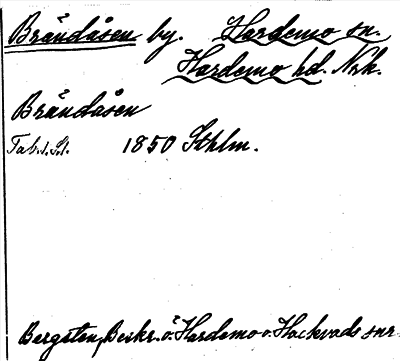 Brändåsen by. Hardemo sn.
Hardemo hd. Nrk.
Brändåsen
1850 Sthlm.
Bergsten, Beskr. ö. Hardemo o. Hackvads snr